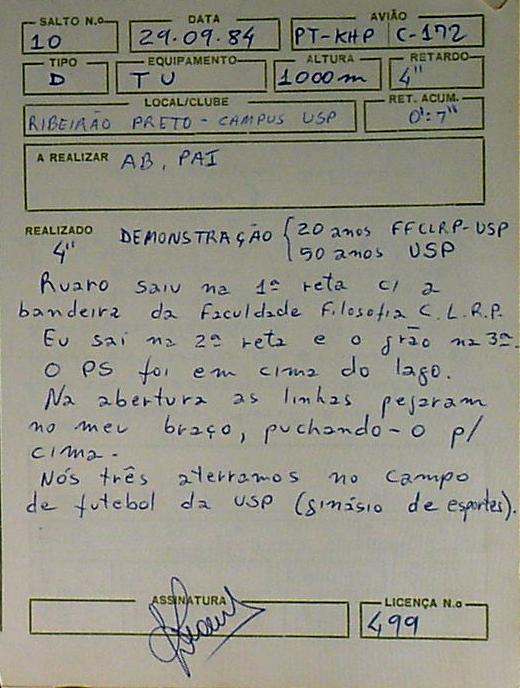 SALTO N.o DATA AVIÃO
10 29.09.84 PT-KHP C-172
TIPO EQUIPAMENTO ALTURA RETARDO
D T U 1000m 4"
LOCAL/CLUBE RET. ACUM.
RIBEIRÃO PRETO - CAMPUS USP 0':7"
A REALIZAR AB, PAI
REALIZADO DEMONSTRAÇÃO { 20 anos FFCLRP-USP
4" 50 anos USP
Ruaro saiu na 1ª reta c/ a
bandeira da Faculdade Filosofia C. L. R. P.
Eu saí na 2ª reta e o grão na 3ª.
O PS foi em cima do lago.
Na abertura as linhas pejaram
no meu braço, puchando-o p/
cima.
Nós três aterramos no campo
de futebol da USP (ginásio de esportes).
ASSINATURA LICENÇA N.o
499